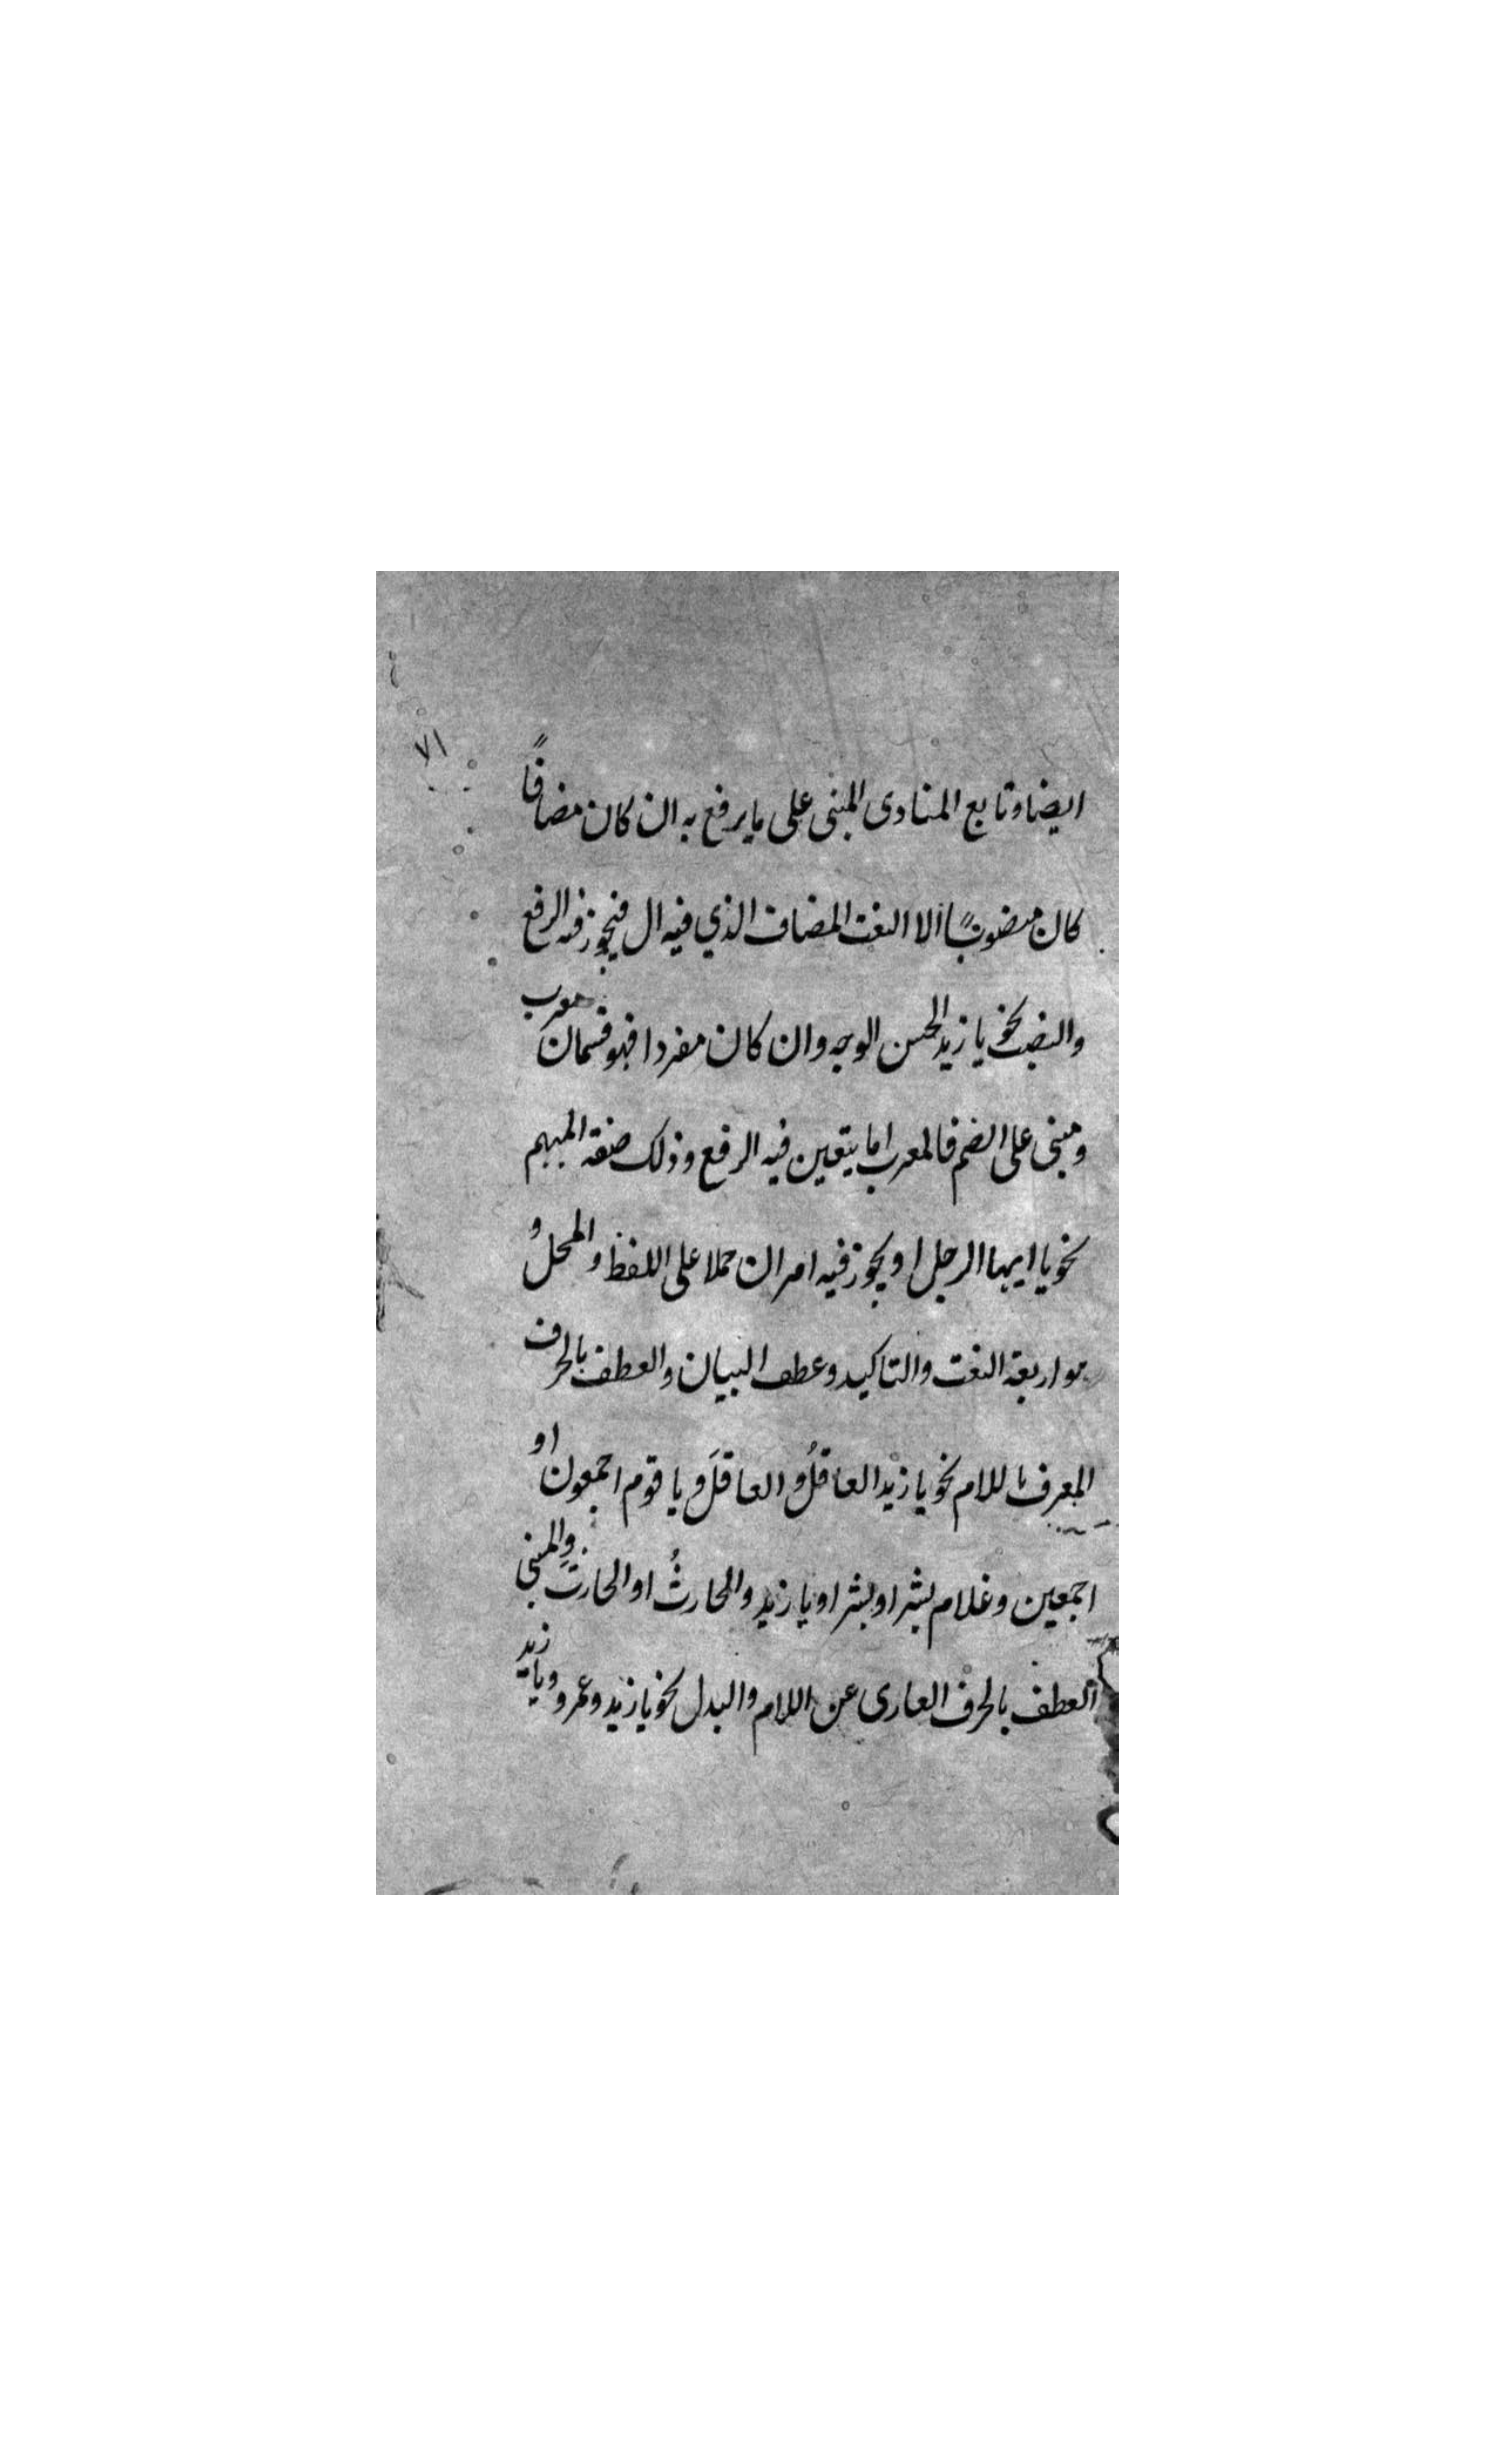 ٧١
ايضا وتابع المنادى المبنى على ما يرفع به ان كان مضافًا
كان منصوبًا الا النعت المضاف الذي فيه ال فيجوز فيه الرفع
والنصب نحو يا زيد الحسن الوجه وان كان مفردا فهو قسمان معرب
ومبنى على الضم فالمعرب اما يتعين فيه الرفع وذلك صفة المبهم
نحو يا ايها الرجل او يجوز فيه امران حملا على اللفظ والمحل و
هو اربعة النعت والتاكيد وعطف البيان والعطف بالحرف
المعرف باللام نحو يا زيد العاقلُ والعاقلَ و يا قوم اجمعون او
اجمعين وغلام بشر او بشرا ويا زيد والحارثُ او الحارثَ والمبنى
العطف بالحرف العارى عن اللام والبدل نحو يا زيد وعمرو ويا زيد